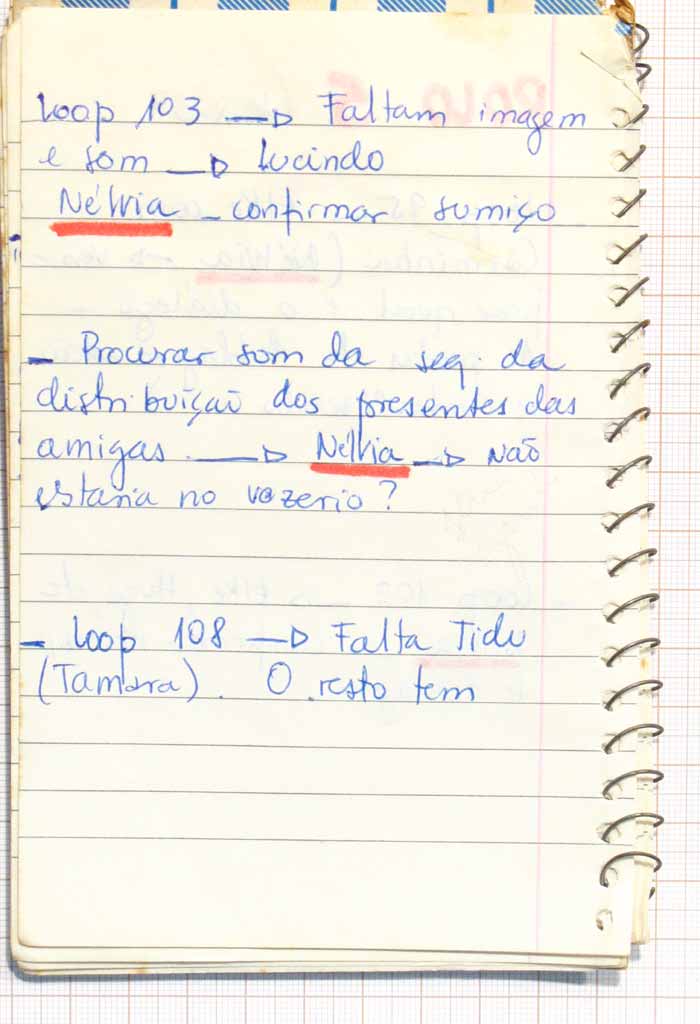 Loop 103 —▷ Faltam imagem
e som —▷ Lucindo
Nélvia – confirmar sumiço
– Procurar som da seq. da
distribuição dos presentes das
amigas. —▷ Nélvia —▷ não
estaria no vozerio?
– Loop 108 —▷ Falta Tidu
(Tamara). O resto tem